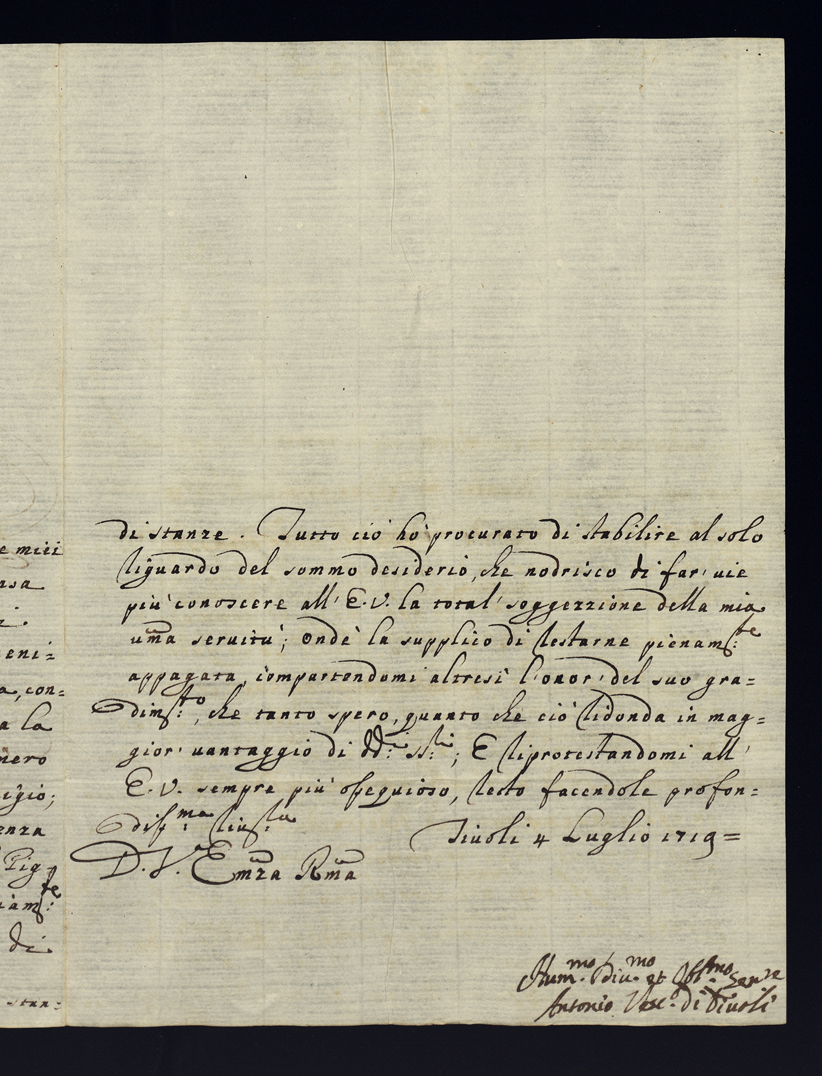 e miei
asa
i.
eni=
a, con=
a la
nero
igio;
enza
Pig
iam:te
di
stan=
di stanze. Tutto ciò hò procurato di stabilire al solo
riguardo del sommo desiderio, che nodrisco di far' uie
più conoscere all' E.V. la total' soggezzione della mia
uma seruitù; ond'è la supplico di restarne pienam:te
appagata, compartendomi altresì l'onor' del suo gra=
dim:to, che tanto spero, quanto che ciò ridonda in mag=
gior' uantaggio di dd:i ss:ri; E riprotestandomi all'
E.V. sempre più osseguioso, resto facendole profon=
diss:ma riu:za
Tiuoli 4 Luglio 1719=
D.V.a Emza Rma
Hum.mo Diu.mo et Obl.mo
Antonio Vesc.o di Tiuoli